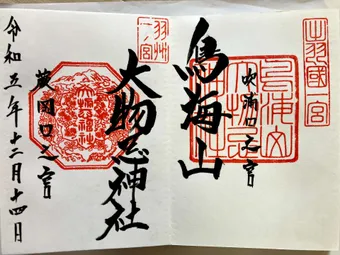 出羽國一宮
吹浦口之宮
鳥海山
羽州一ノ宮
大物忌神社
蕨岡口之宮
令和五年十二月十四日